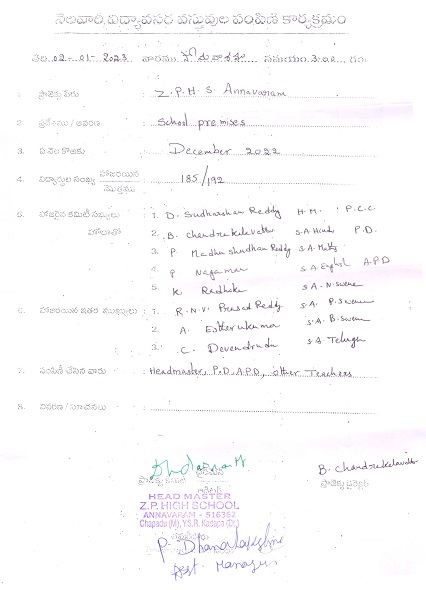 నెలవారి విద్యావసర వస్తువుల పంపిణి కార్యక్రమం
తేది. 02-01-2023 వారము సోమవారం సమయం 3:00 గం
1. ప్రాజెక్టు పేరు : Z.P.H.S Annavaram
2. ప్రదేశము / ఆవరణ : School premises
3. ఏ నెల కొఱకు : December 2022
4. విద్యార్థుల సంఖ్య హాజరయిన / మొత్తము : 185/192
5. హాజరైన కమిటీ సభ్యులు 1. D. Sudharshan Reddy H.M. P.C.C.
హోదాతో 2. B. Chandrakalavathi S.A Hindi P.D.
3. P. Madhu Shudhan Reddy S.A Maths
4. P Nagamani S.A English A.P.D
5. K Radhika S.A. N.Science
6. హాజరయిన ఇతర ముఖ్యులు : 1. R.N.V. Prasad Reddy S.A. P.Science
2. A. Esther Kumari S.A. B.Science
3. C. Devendrudu S.A Telugu
7. పంపిణి చేసిన వారు : Headmaster, P.D, A.P.D, other Teachers
8. వివరణ / సూచనలు :
B. Chandrakalavathi
ప్రాజెక్టు డైరెక్టర్
HEAD MASTER
Z.P. HIGH SCHOOL
ANNAVARAM - 516362
Chapadu (M), Y.S.R. Kadapa (Dt.)
P. Dhanalakshmi
Asst. Manager